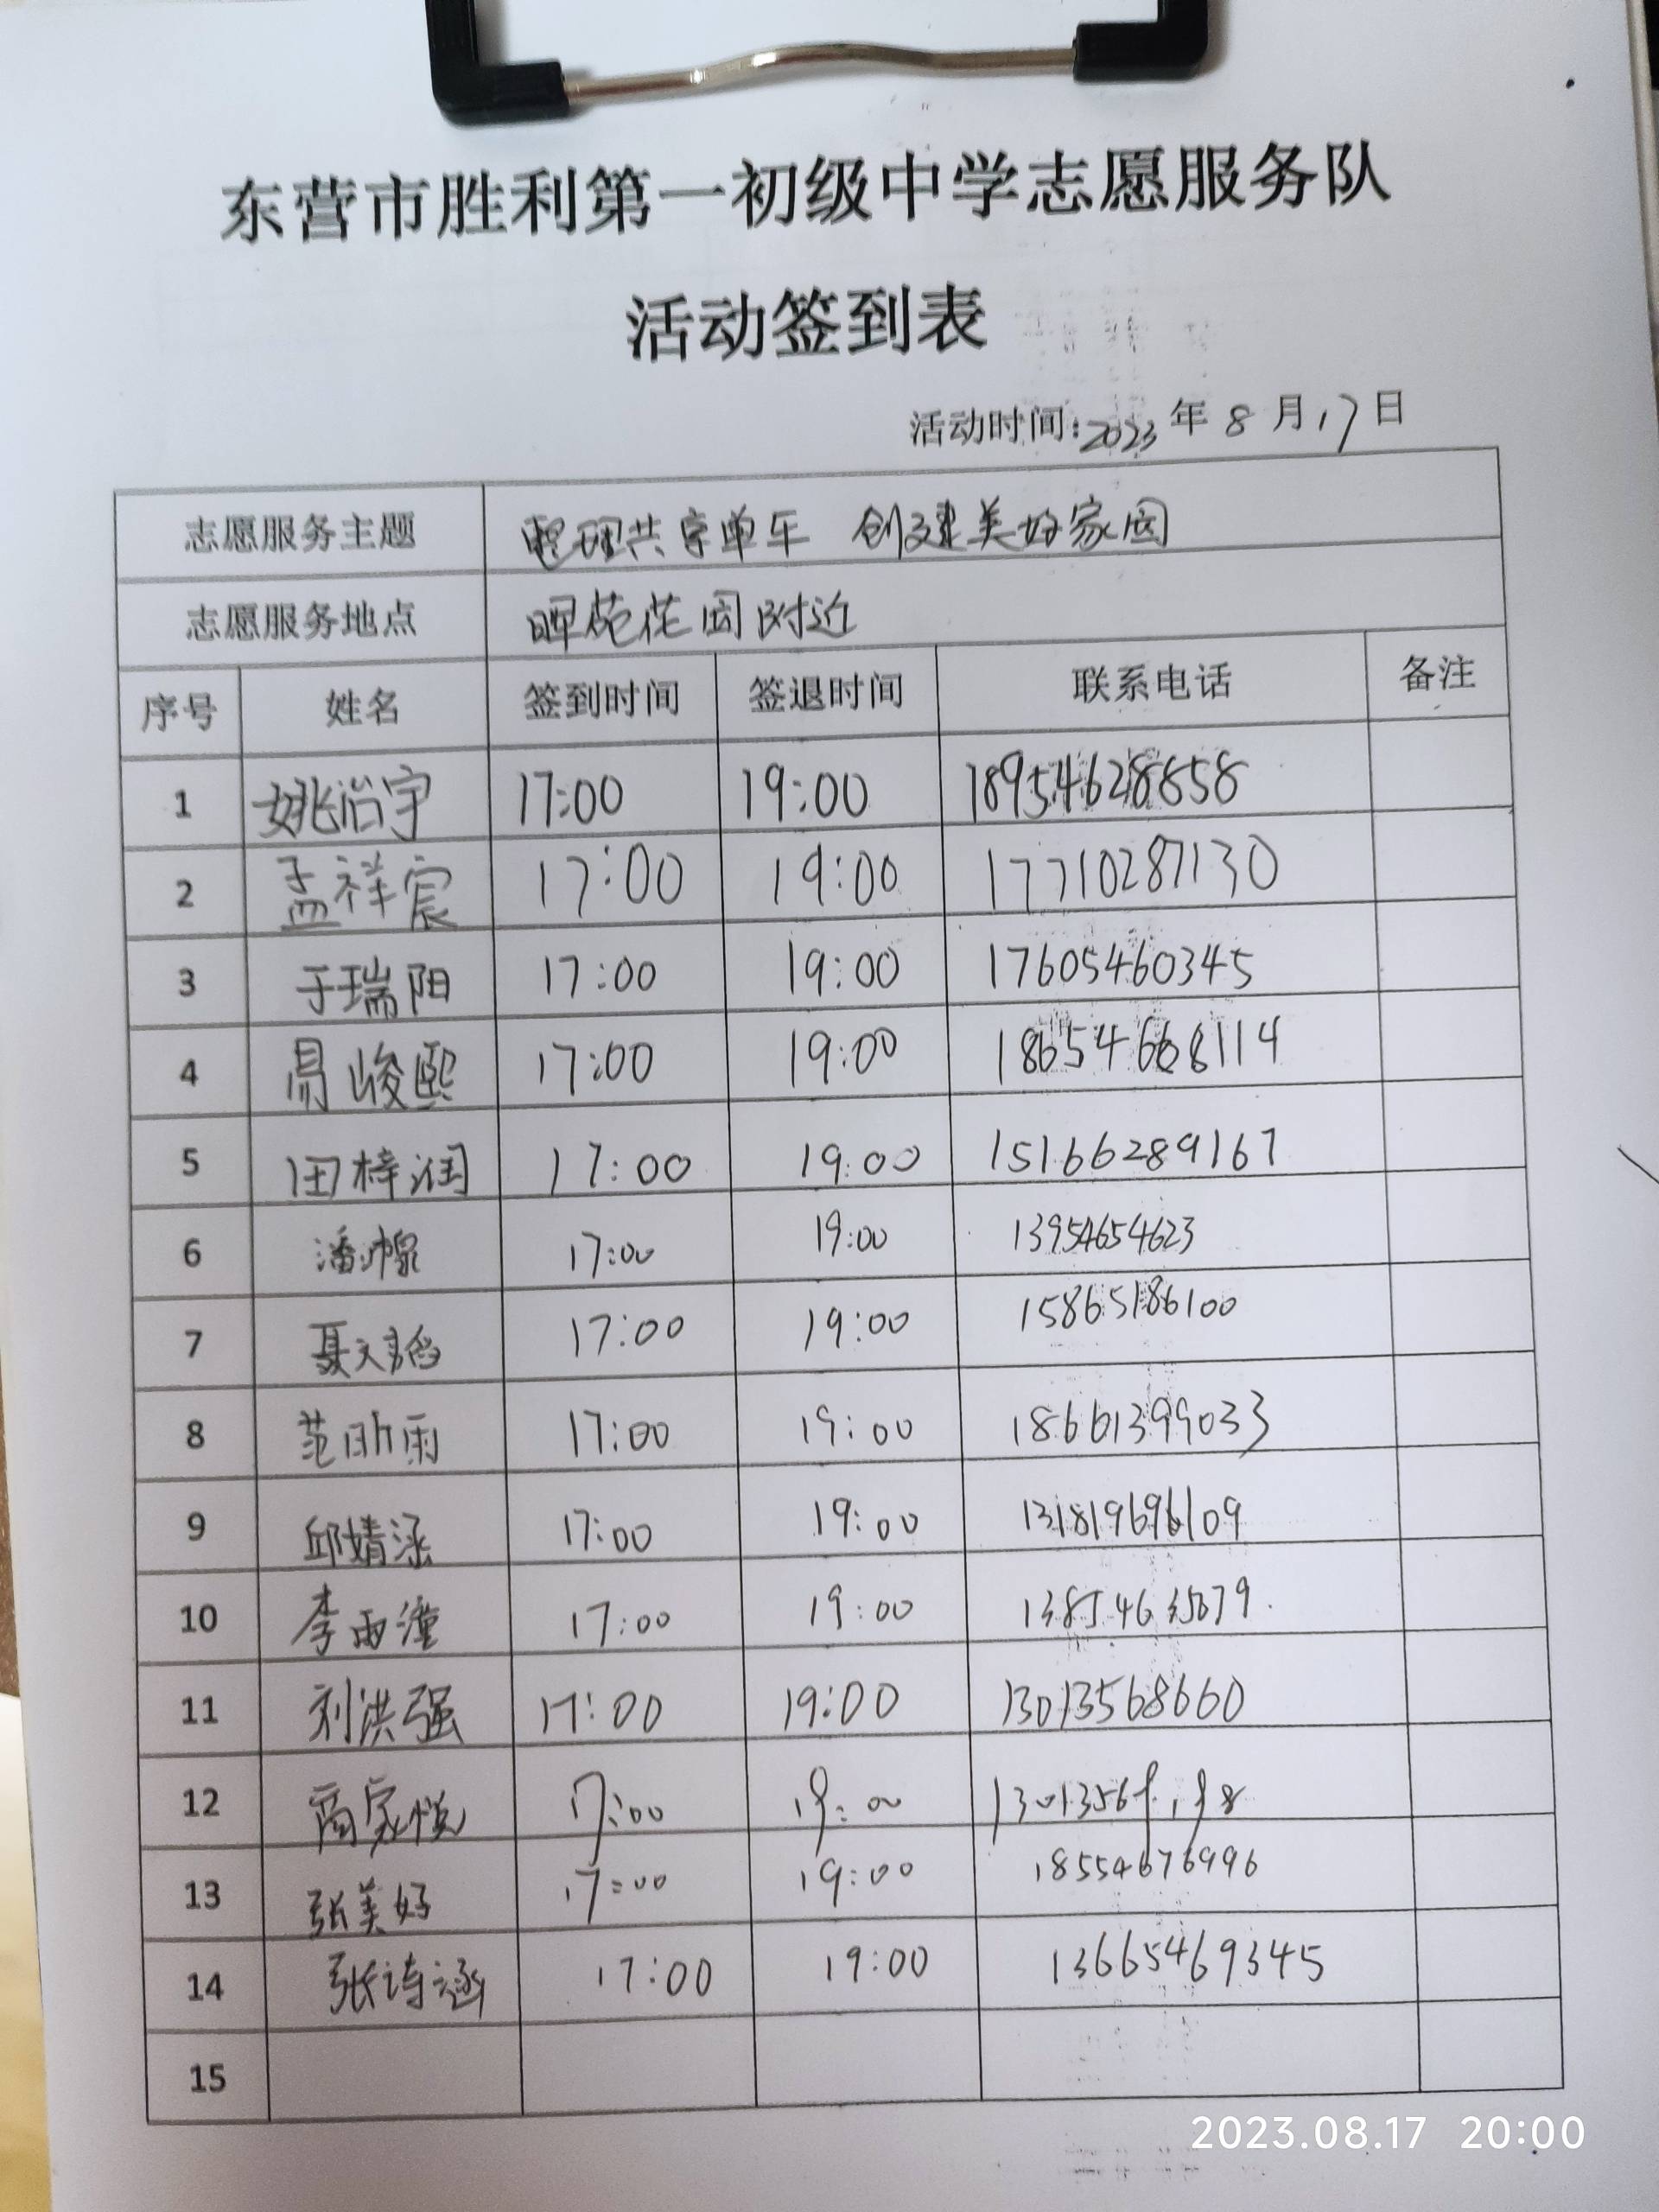 东营市胜利第一初级中学志愿服务队
活动签到表
活动时间:2023年8月17日
志愿服务主题 整理共享单车 创建美好家园
志愿服务地点 晖苑花园附近
序号 姓名 签到时间 签退时间 联系电话 备注
1 姚治宇 17:00 19:00 18954628858
2 孟祥宸 17:00 19:00 17710287130
3 于瑞阳 17:00 19:00 17605460345
4 易峻熙 17:00 19:00 18654668114
5 田梓润 17:00 19:00 15166289167
6 17:00 19:00 13954654623
7 17:00 19:00 15865186100
8 范昕雨 17:00 19:00 18661399033
9 邱婧涵 17:00 19:00 131819696109
10 李雨潼 17:00 19:00
11 刘洪强 17:00 19:00 13013568660
12 商家悦 17:00 19:00
13 张美好 17:00 19:00 18554676996
14 张诗涵 17:00 19:00 13665469345
15
2023.08.17 20:00